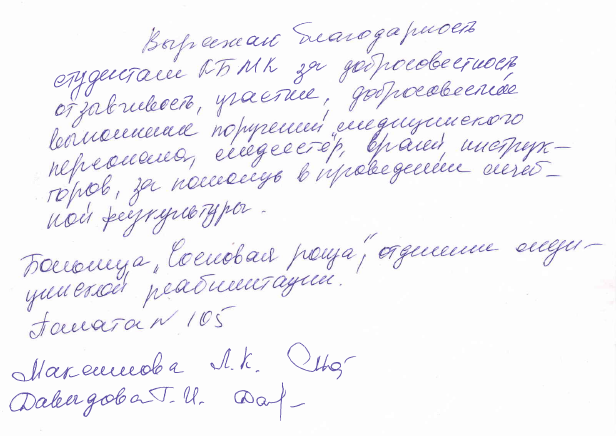 Выражаю благодарность
студентам КБМК за добросовестность
отзывчивость, участие, добросовестное
выполнение поручений медицинского
персонала, медсестёр, врачей инструк-
торов, за помощь в проведении лечеб-
ной физкультуры.
Больница „Сосновая роща", отделение меди-
цинской реабилитации.
Палата № 105
Максимова Л.К.
Давыдова Т.И.